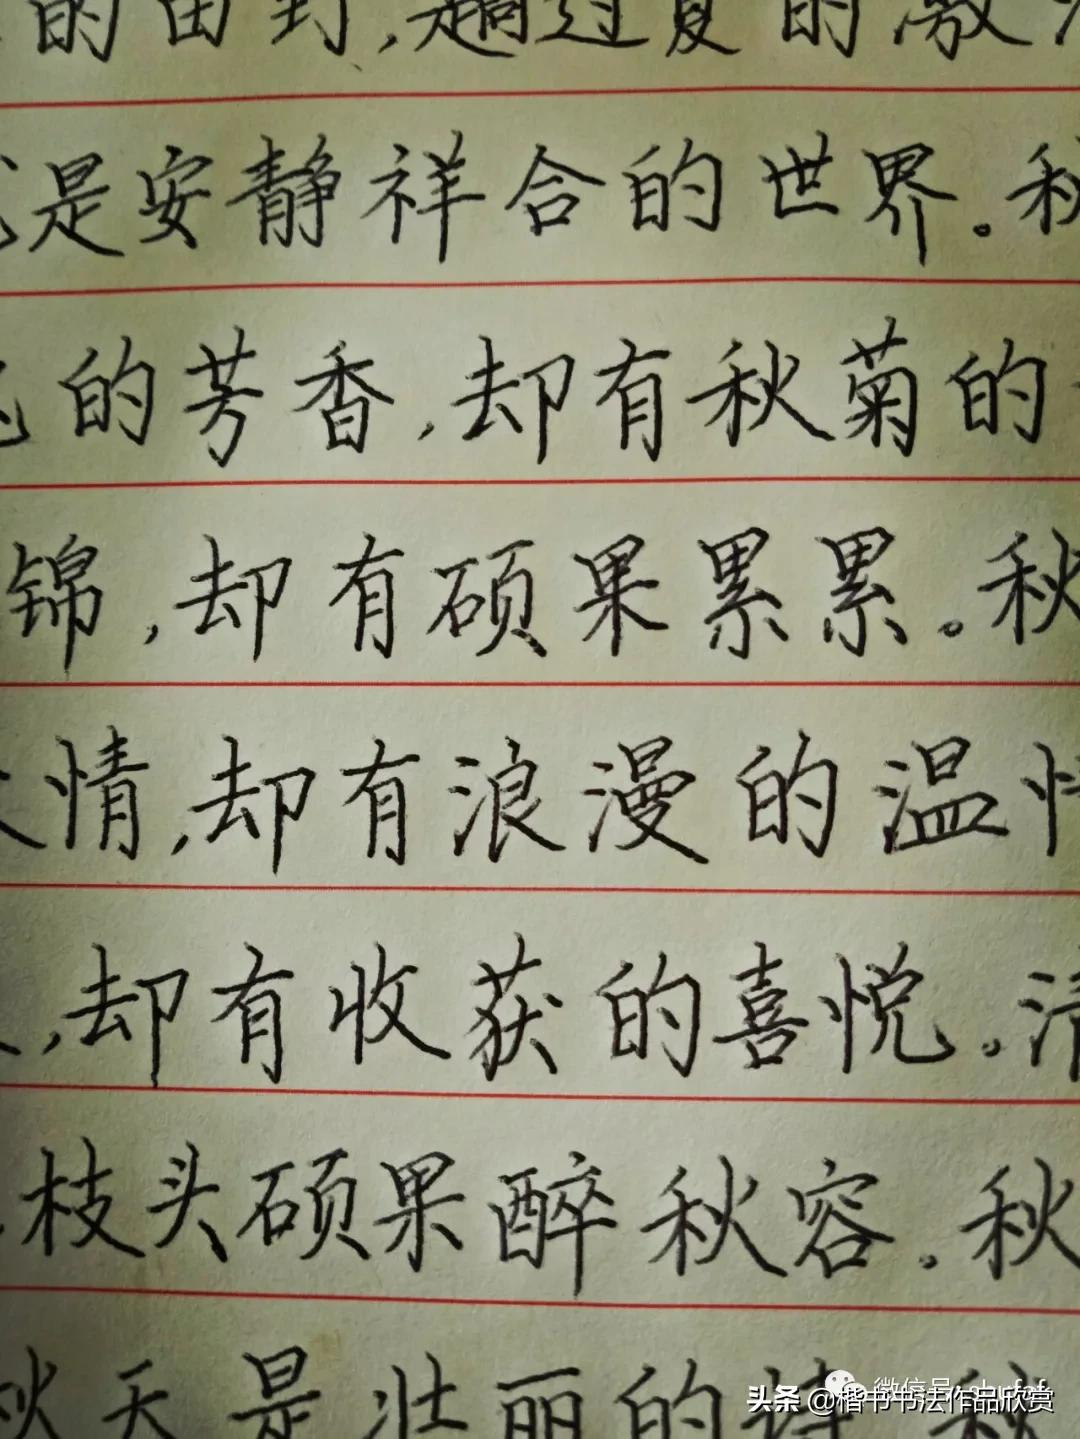 的田野,趟过夏的激
是安静祥合的世界。秋
的芳香,却有秋菊的
锦,却有硕果累累。秋
情,却有浪漫的温情
,却有收获的喜悦。清
枝头硕果醉秋容。秋
秋天是壮丽的诗,秋
微信号
头条 @楷书书法作品欣赏